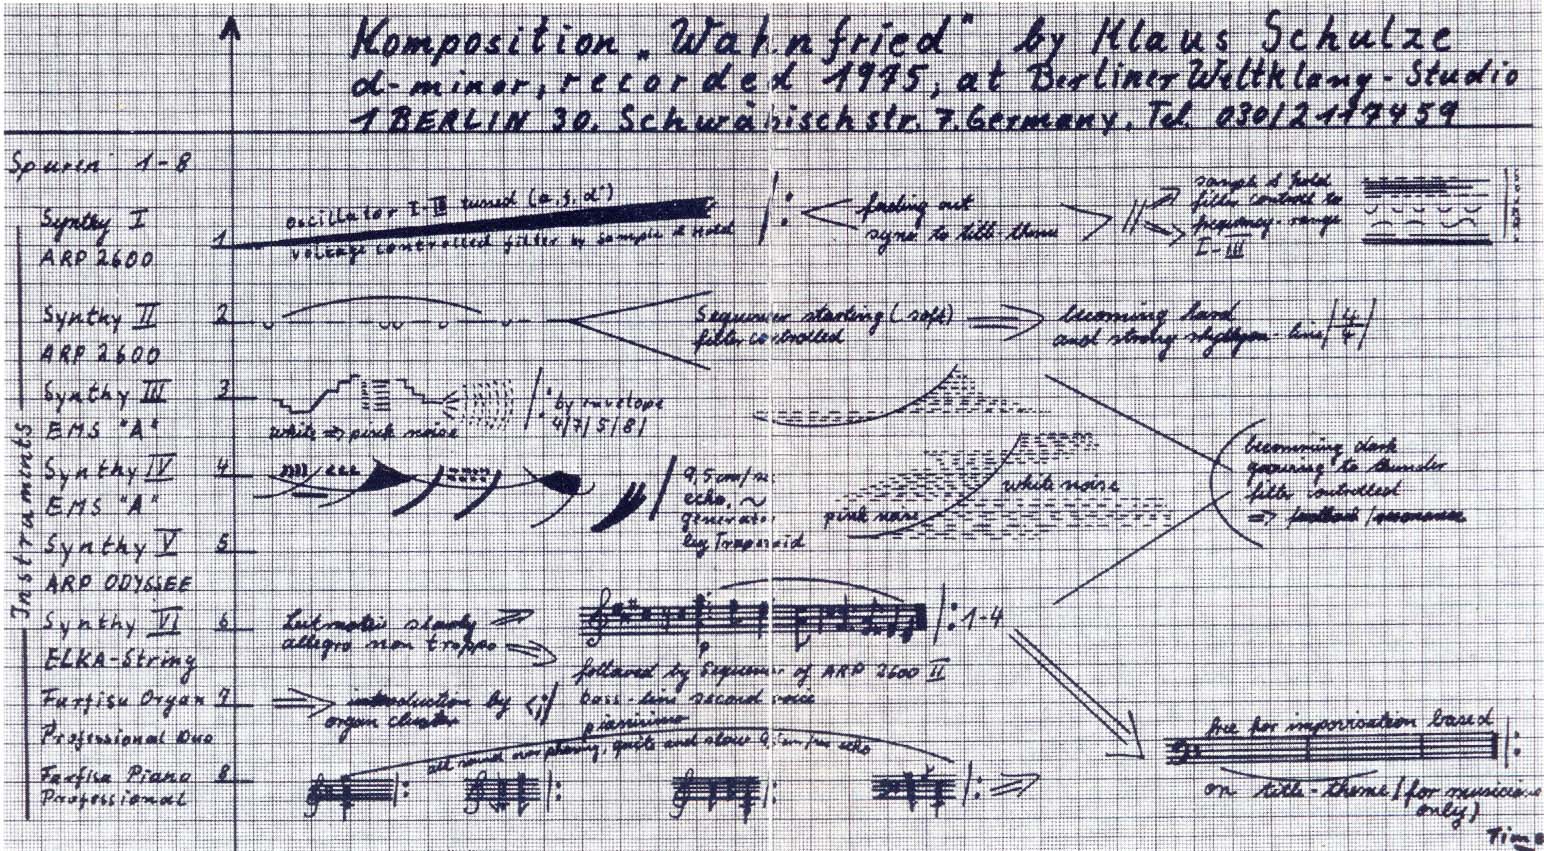 Komposition „Wahnfried" by Klaus Schulze
d-minor, recorded 1975, at Berliner Weltklang-Studio
1 BERLIN 30. Schwäbischstr. 7. Germany. Tel. 030/2117459
Spuren 1-8
Instruments
Synthy I
ARP 2600
1
oscillator I-III tuned
voltage controlled filter by sample & hold
fading out
sync to title-theme
sample & hold
filter controls to
frequency-range
I-III
Synthy II 2
ARP 2600
Sequencer starting (soft)
filter controlled
becoming hard
and strong
4/4
Synthy III 3
EMS "A"
white => pink noise
by envelope
4/7/5/8/
Synthy IV 4
EMS "A"
9,5cm/
echo, ~
generator
by Trapezoid
white noise
pink noise
becomming dark
growing to thunder
filter controlled
=> feedback/resonance
Synthy V 5
ARP ODYSSEE
Synthy VI 6
ELKA-String
Leitmotiv slowly
allegro non troppo
1-4
followed by Sequencer of ARP 2600 II
Farfisa Organ 7
Professional Duo
introduction by
organ cluster
bass-line second voice
pianissimo
Farfisa Piano 8
Professional
all sound phasing, quite and slow echo
for improvisation based
on title-theme (for musicians
only)
Time